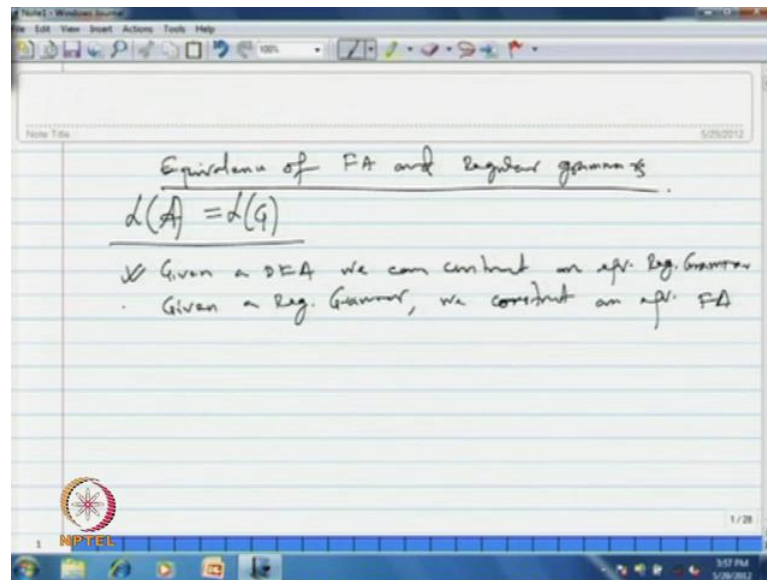 Note1 - Windows Journal
File Edit View Insert Actions Tools Help
100%
Note Title
5/29/2012
Equivalence of FA and Regular grammars
L(A) = L(G)
Given a DFA we can contruct an eqv. Reg. Grammar
Given a Reg. Grammar, we construct an eqv. FA
NPTEL
1/28
1
3:57 PM
5/29/2012